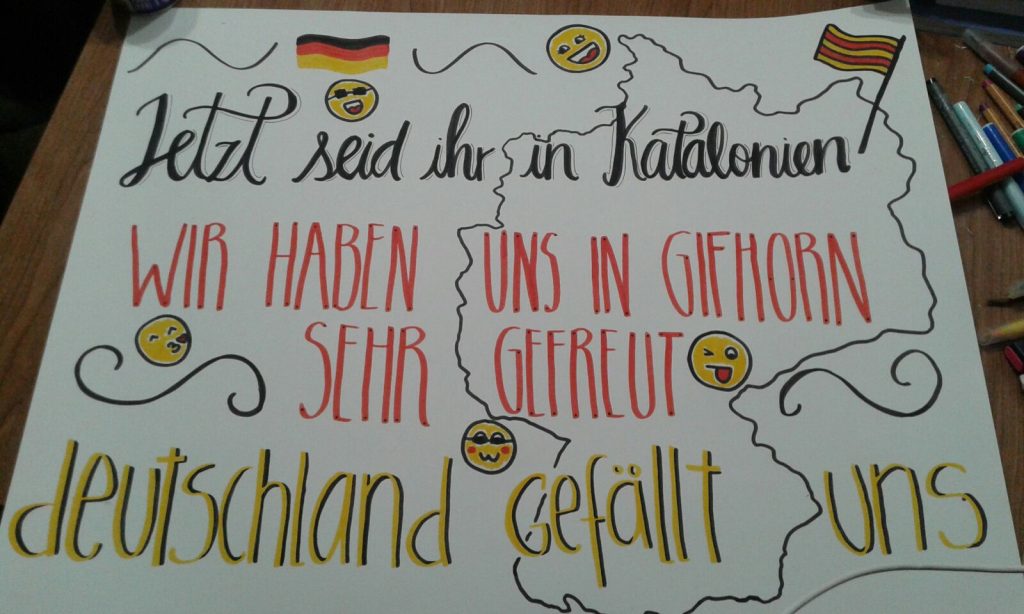 Jetzt seid ihr in Katalonien
WIR HABEN UNS IN GIFHORN
SEHR GEFREUT
deutschland gefällt uns